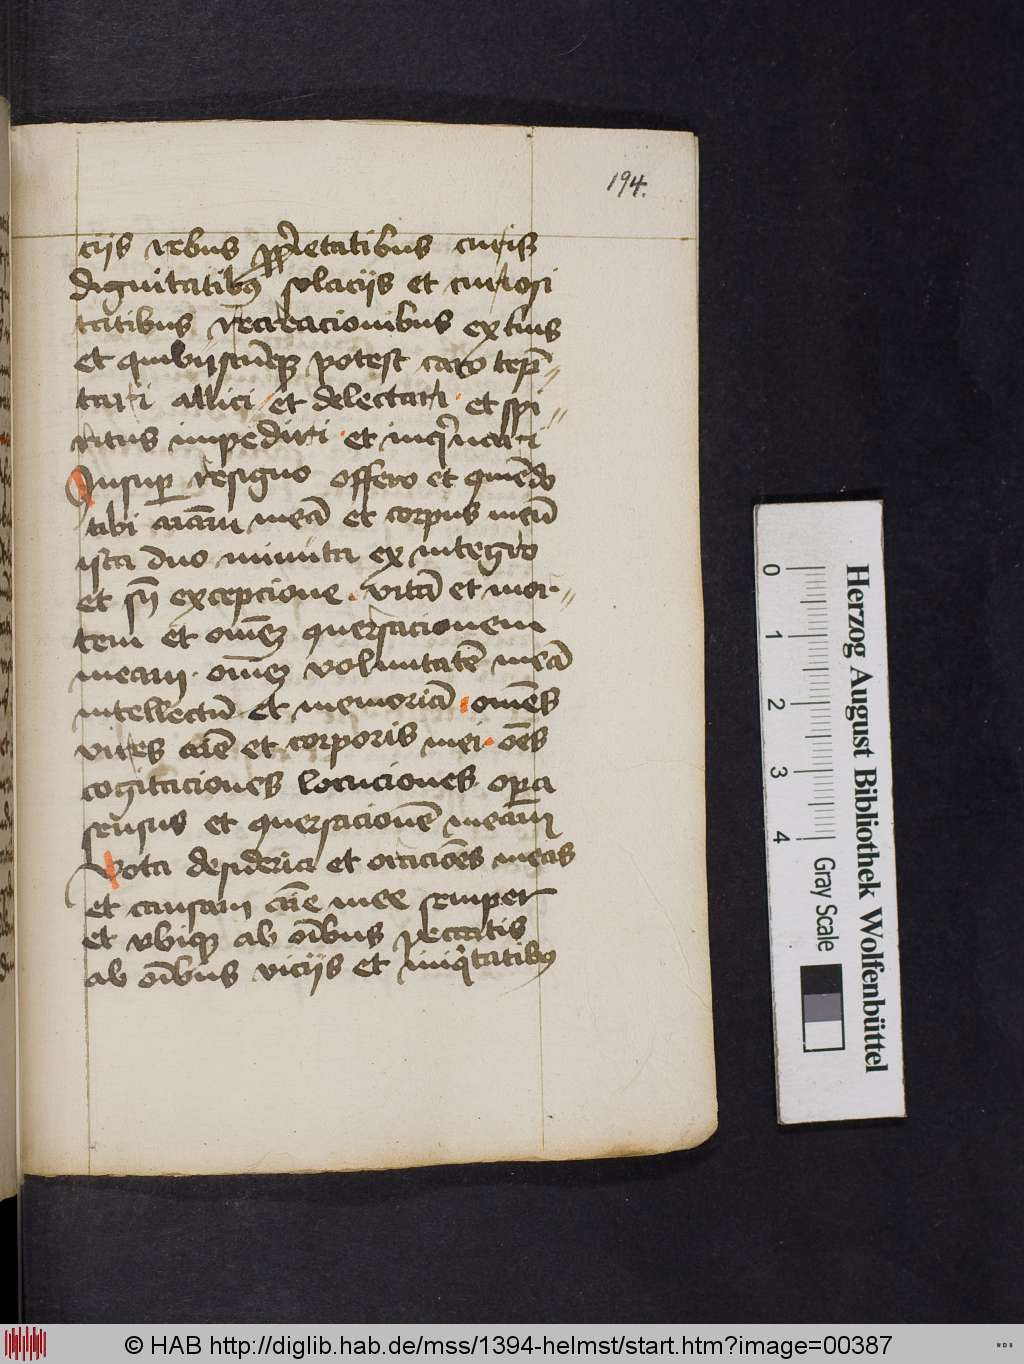 194.
ciis rebus ꝓp̃ietatibus curis
dignitatibꝰ solaciis et curiosi
tatibus recreacionibus ex hiis
et quibuiscũqꝫ potest caro tep̃
tari allici et delectari et spi
ritus impediri et inq̃nari
Insuꝑ resigno offero et ꝯmẽdo
tibi aĩam meã et corpus meũ
ista duo minuta ex integro
et sñ excepcione vitã et mor
tem et omẽꝫ ꝯuersacionem
meam omẽꝫ voluntatẽ meã
intellectũ et memoriã omẽs
vires aĩe et corporis mei oẽs
cogitaciones locuciones oꝑa
sensus et ꝯuersacionẽ meam
Vota desideria et oracioẽs meas
et causam aĩe mee semper
et vbiqꝫ ab oĩbus peccatis
ab oĩbus viciis et iniq̃tatibꝰ
Herzog August Bibliothek Wolfenbüttel
0 1 2 3 4
Gray Scale
© HAB http://diglib.hab.de/mss/1394-helmst/start.htm?image=00387